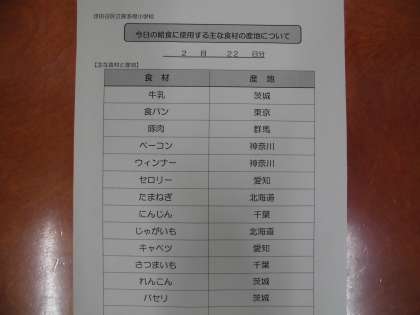 今日の給食に使用する主な食材の産地について
2 月 22 日分
【主な食材と産地】
食 材 産 地
牛乳 茨城
食パン 東京
豚肉 群馬
ベーコン 神奈川
ウィンナー 神奈川
セロリー 愛知
たまねぎ 北海道
にんじん 千葉
じゃがいも 北海道
キャベツ 愛知
さつまいも 千葉
れんこん 茨城
パセリ 茨城